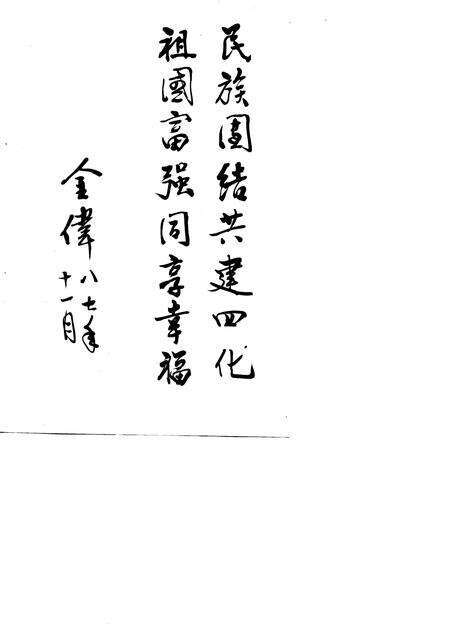 民族團结共建四化
祖國富强同享幸福
金偉
八七年
十一月